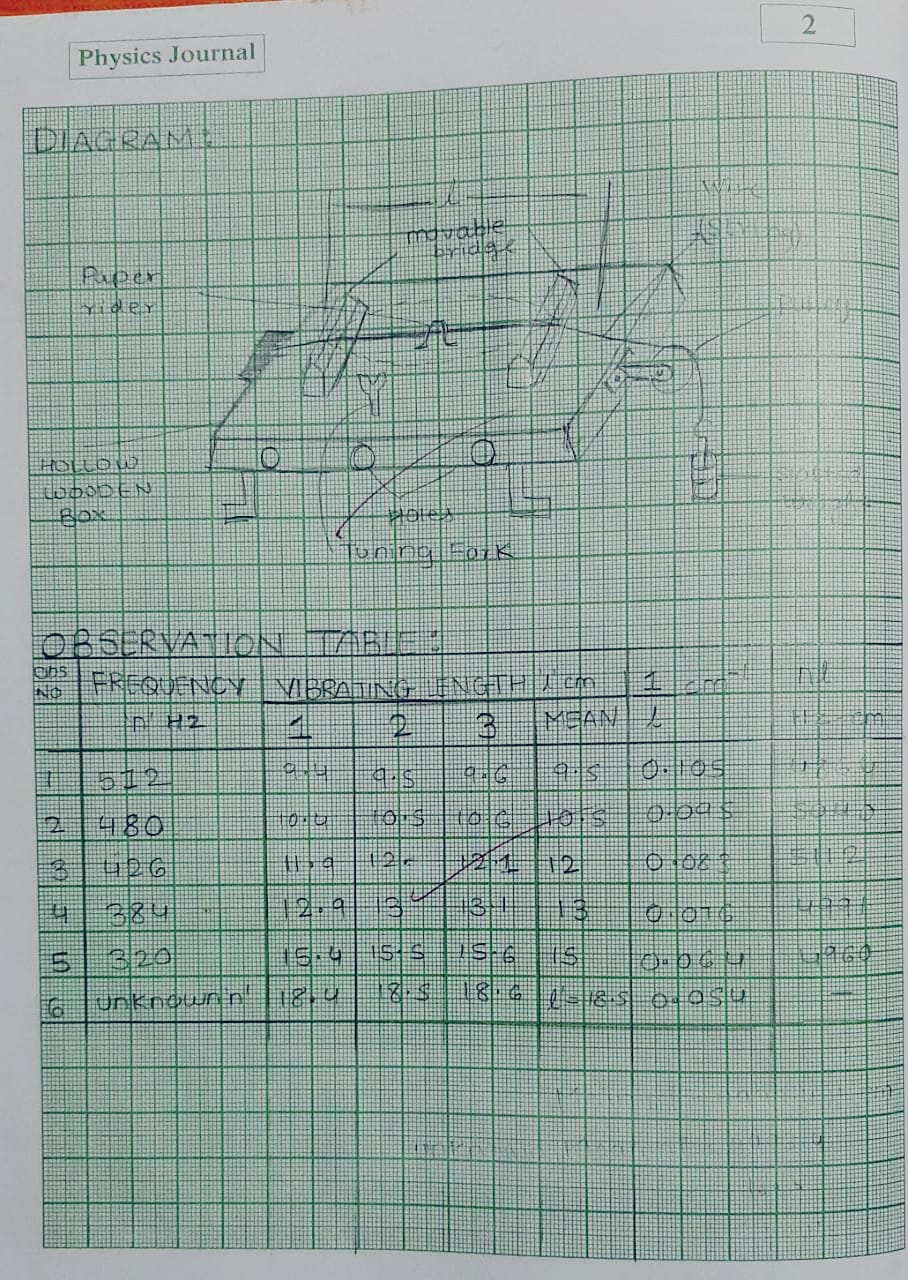 2
Physics Journal
DIAGRAM:
l
Wire
movable
bridge
Paper
rider
HOLLOW
WOODEN
BOX
Holes
Tuning Fork
OBSERVATION TABLE:
OBS NO FREQUENCY 'n' HZ VIBRATING LENGTH 'l' cm 1/l cm⁻¹ nl Hz-cm
1 2 3 MEAN
1 512 9.4 9.5 9.6 9.5 0.105
2 480 10.4 10.5 10.6 10.5 0.095 5040
3 426 11.9 12 12.1 12 0.083 5112
4 384 12.9 13 13.1 13 0.076
5 320 15.4 15.5 15.6 15 0.064 4960
6 unknown 'n' 18.4 18.5 18.6 l' = 18.5 0.054 —